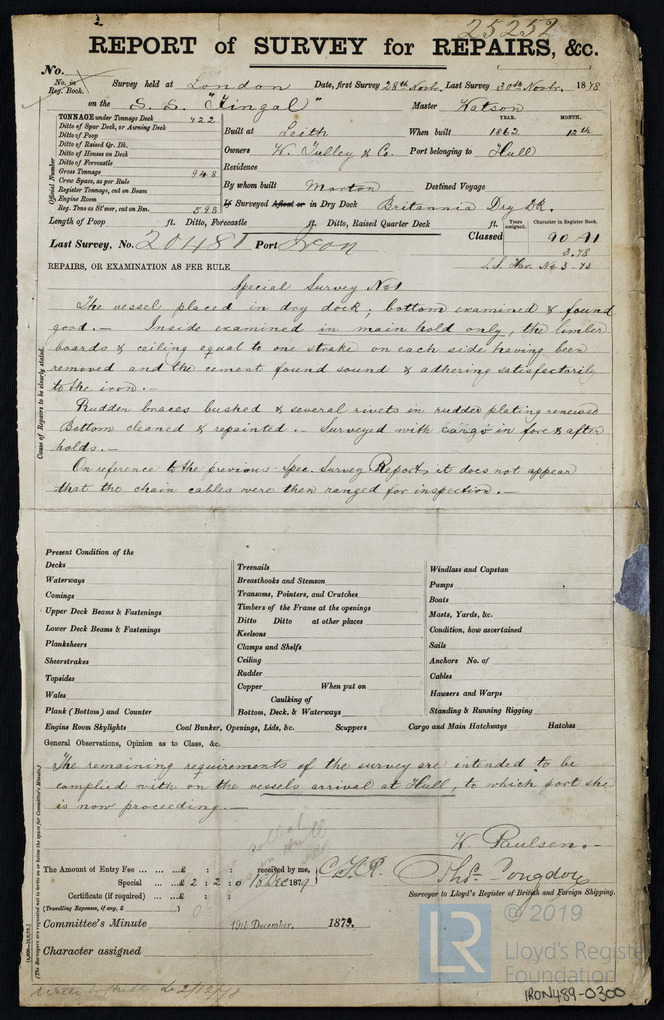 25252
REPORT of SURVEY for REPAIRS, &c.
No.
No. in Reg. Book.
Survey held at London Date, first Survey 28th Novbr. Last Survey 30th Novbr. 1878
on the S. S. "Fingal" Master Watson
TONNAGE under Tonnage Deck 722
Ditto of Spar Deck, or Awning Deck
Ditto of Poop
Ditto of Raised Qr. Dk.
Ditto of Houses on Deck
Ditto of Forecastle
Gross Tonnage 948
Crew Space, as per Rule
Register Tonnage, cut on Beam
Engine Room
Reg. Tons as St'mer, cut on Bm. 598
Official Number
YEAR. MONTH.
Built at Leith When built 1862 12th
Owners W. Tulley & Co. Port belonging to Hull
Residence
By whom built Morton Destined Voyage
If Surveyed Afloat or in Dry Dock Britannia Dry Dk.
Length of Poop ft. Ditto, Forecastle ft. Ditto, Raised Quarter Deck ft.
Years assigned. Character in Register Book.
Last Survey, No. 20481 Port Iron Classed 90 A1
3.78
REPAIRS, OR EXAMINATION AS PER RULE
No 3 - 73
Special Survey No 1
The vessel placed in dry dock; bottom examined & found
good. — Inside examined in main hold only, the limber
boards & ceiling equal to one strake on each side having been
removed and the cement found sound & adhering satisfactorily
to the iron. —
Rudder braces bushed & several rivets in rudder plating renewed
Bottom cleaned & repainted. — Surveyed with cargo in fore & after
holds. —
On reference to the previous Spec. Survey Report, it does not appear
that the chain cables were then ranged for inspection. —
Cause of Repairs to be clearly stated.
Present Condition of the
Decks
Waterways
Comings
Upper Deck Beams & Fastenings
Lower Deck Beams & Fastenings
Planksheers
Sheerstrakes
Topsides
Wales
Plank (Bottom) and Counter
Treenails
Breasthooks and Stemson
Transoms, Pointers, and Crutches
Timbers of the Frame at the openings
Ditto Ditto at other places
Keelsons
Clamps and Shelfs
Ceiling
Rudder
Copper When put on
Caulking of
Bottom, Deck, & Waterways
Windlass and Capstan
Pumps
Boats
Masts, Yards, &c.
Condition, how ascertained
Sails
Anchors No. of
Cables
Hawsers and Warps
Standing & Running Rigging
Engine Room Skylights Coal Bunker, Openings, Lids, &c. Scuppers Cargo and Main Hatchways Hatches
General Observations, Opinion as to Class, &c.
The remaining requirements of the survey are intended to be
complied with on the vessels arrival at Hull, to which port she
is now proceeding. —
W. Paulsen. —
The Amount of Entry Fee ... ... ...£ : : received by me,
Special ... ...£ 2 : 2 : 0 18 Dec 1879
Thos. Congdon
Certificate (if required) ... ...£ : :
Surveyor to Lloyd's Register of British and Foreign Shipping.
(Travelling Expenses, if any, £ )
Committee's Minute 19th December, 1879.
Character assigned
(The Surveyors are requested not to write on or below the space for Committee's Minute.)
© 2019
LR
Lloyd's Register
Foundation
IRON489-0300